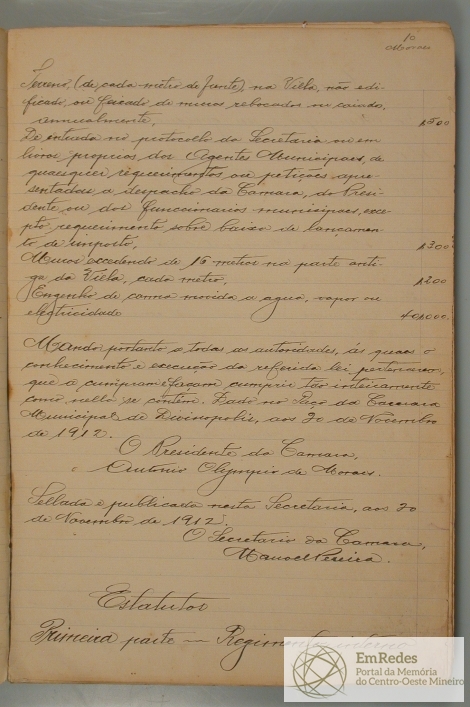 10
Moraes
Terreno, (de cada metro de frente) na Villa, não edi-
ficado, ou feixado de muros rebocados ou caiado,
annualmente, 1,500
De entrada no protocollo da Secretaria ou em
livros proprios dos Agentes Municipaes, de
quaesquer requerimentos ou petições apre-
sentadas a despacho da Camara, do Presi-
dente ou dos funccionarios municipaes, exce-
pto requerimento sobre baixa de lançamen-
to de imposto, 1,300
Muros excedendo de 15 metros na parte anti-
ga da Villa, cada metro, 1,200
Engenho de canna movida a agua, vapor ou
electricidade 40,000
Mando portanto a todas as autoridades, ás quaes o
conhecimento e execução da referida lei pertencerem,
que a cumpram e façam cumprir tão inteiramente
como nella se contém. Dado no Paço da Camara
Municipal de Divinopolis, aos 30 de Novembro
de 1912.
O Presidente da Camara,
Antonio Olympio de Moraes.
Sellada e publicada nesta Secretaria, aos 30
de Novembro de 1912.
O Secretario da Camara,
Manoel Pereira.
Estatutos
Primeira parte — Regimento interno
EmRedes
Portal da Memória
do Centro-Oeste Mineiro